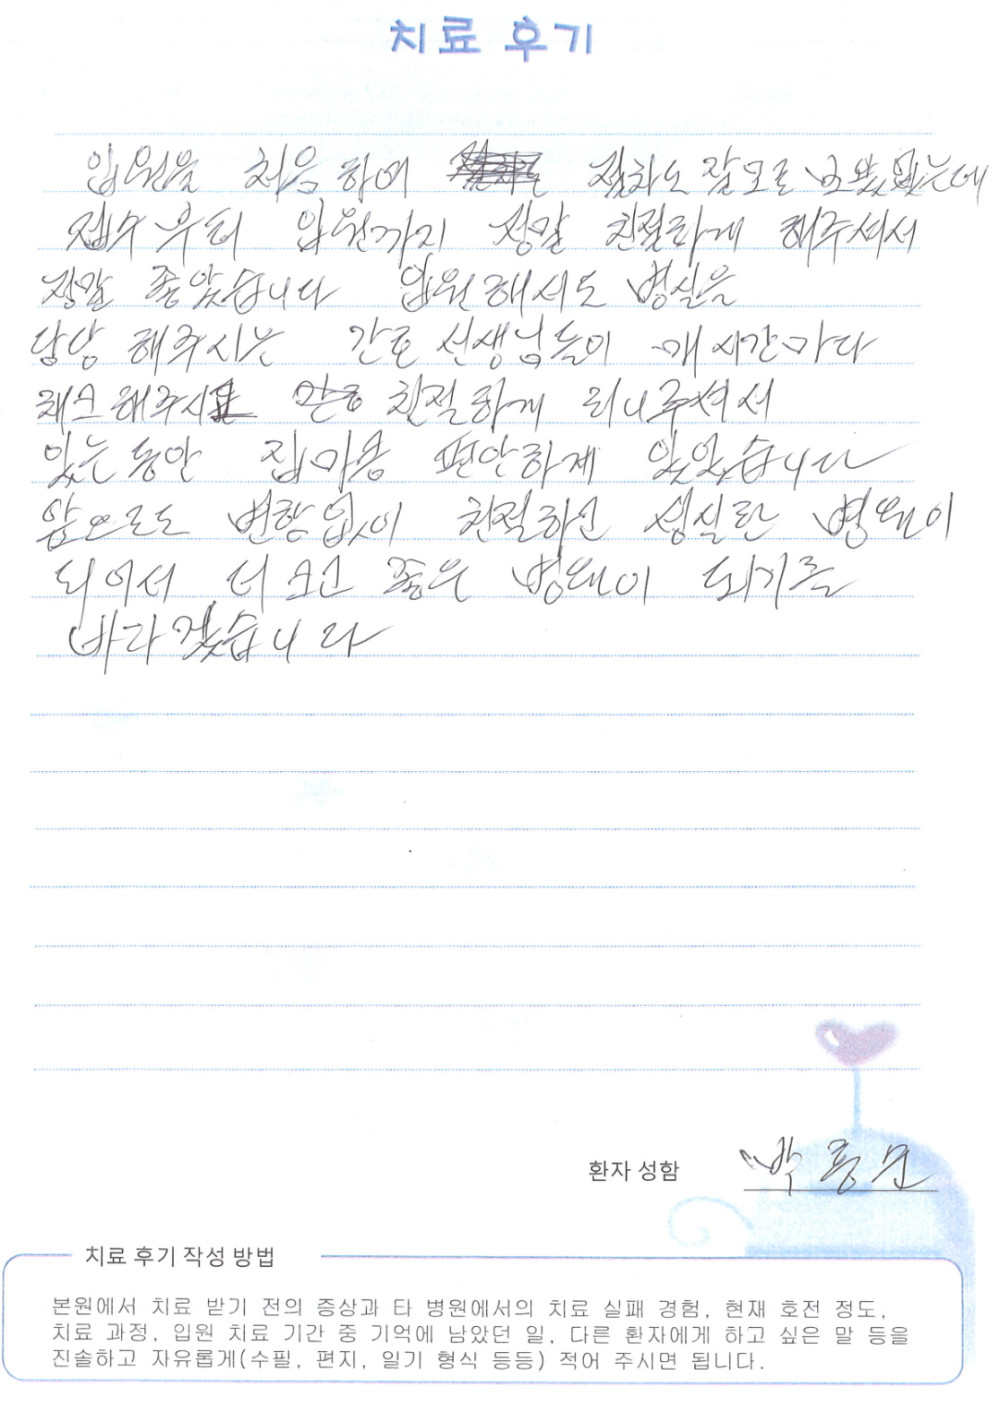 치료 후기
입원을 처음 하여 절차도 잘 모르
접수부터 입원까지 정말 친절하게 해주셔서
정말 좋았습니다 입원해서도 병실을
담당 해주시는 간호 선생님들이 매 시간마다
체크해주시고 친절하게 해주셔서
있는 동안 집마냥 편안하게 있었습니다
앞으로도 변함없이 친절하고 성실한 병원이
되어서 더 크고 좋은 병원이 되기를
바라겠습니다
환자 성함 박
치료 후기 작성 방법
본원에서 치료 받기 전의 증상과 타 병원에서의 치료 실패 경험, 현재 호전 정도,
치료 과정, 입원 치료 기간 중 기억에 남았던 일, 다른 환자에게 하고 싶은 말 등을
진솔하고 자유롭게(수필, 편지, 일기 형식 등등) 적어 주시면 됩니다.